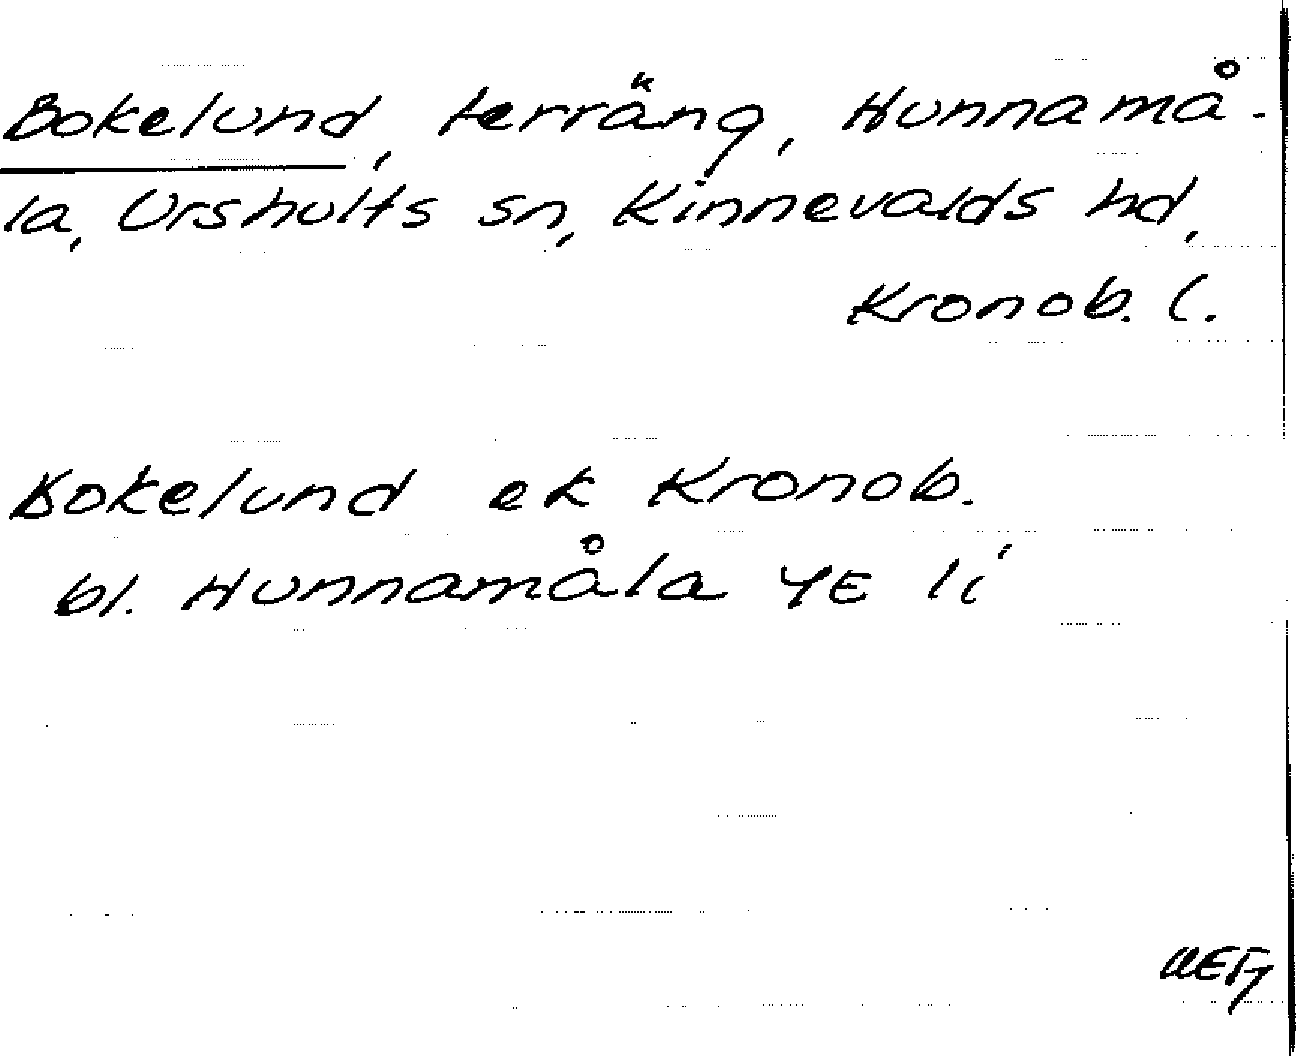 Bokelund, terräng, Hunnamå-
la, Urshults sn, Kinnevalds hd,
Kronob. l.
Bokelund ek Kronob.
bl. Hunnamåla 4E 1i